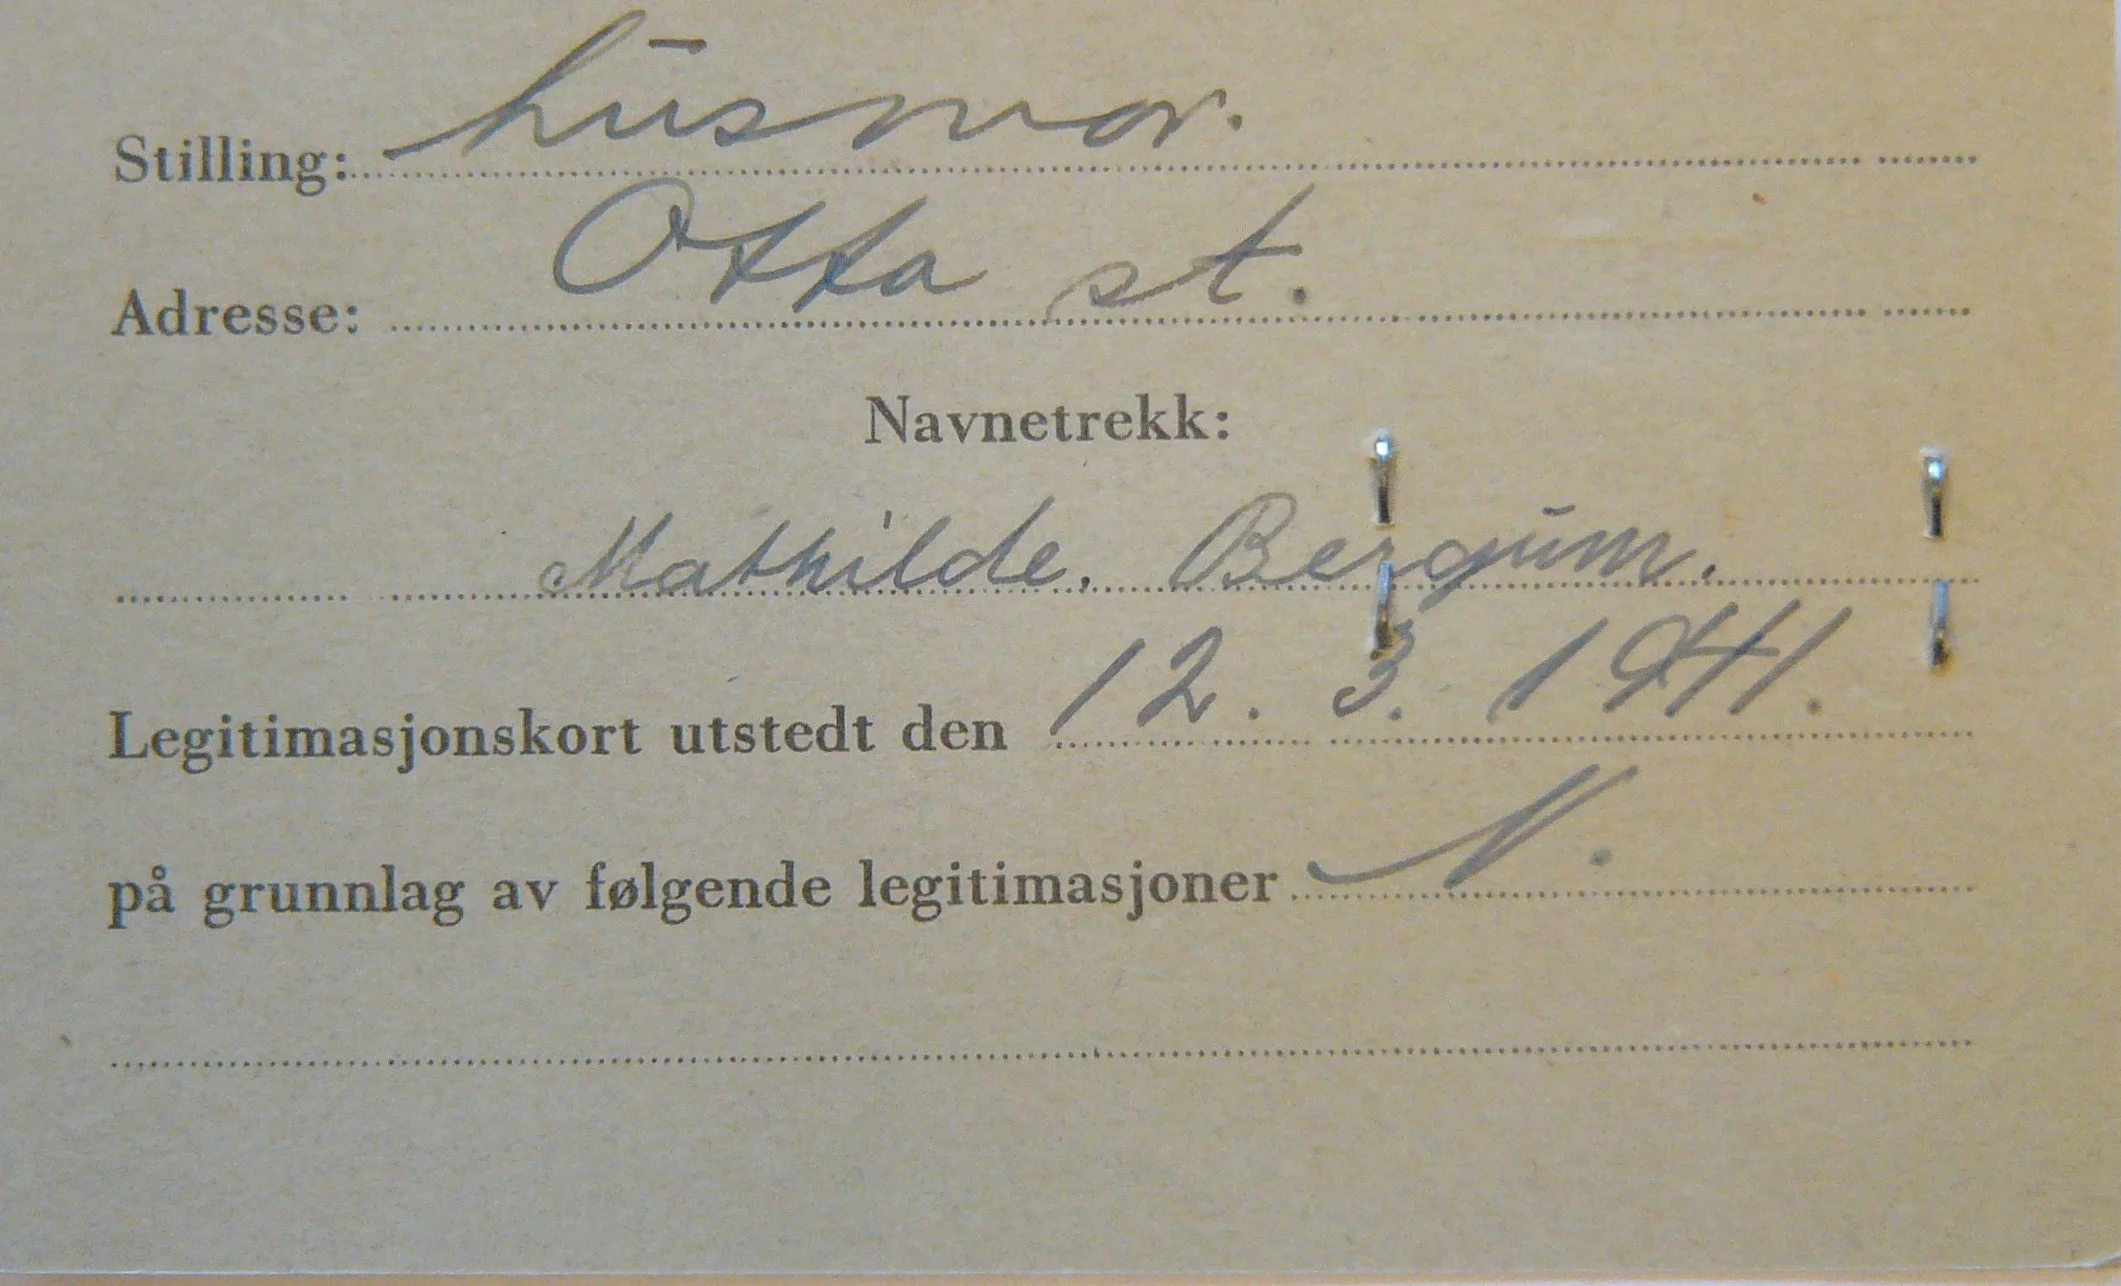 Stilling: husmor.
Adresse: Otta st.
Navnetrekk:
Mathilde. Bergum.
Legitimasjonskort utstedt den 12. 3. 1941.
på grunnlag av følgende legitimasjoner N.